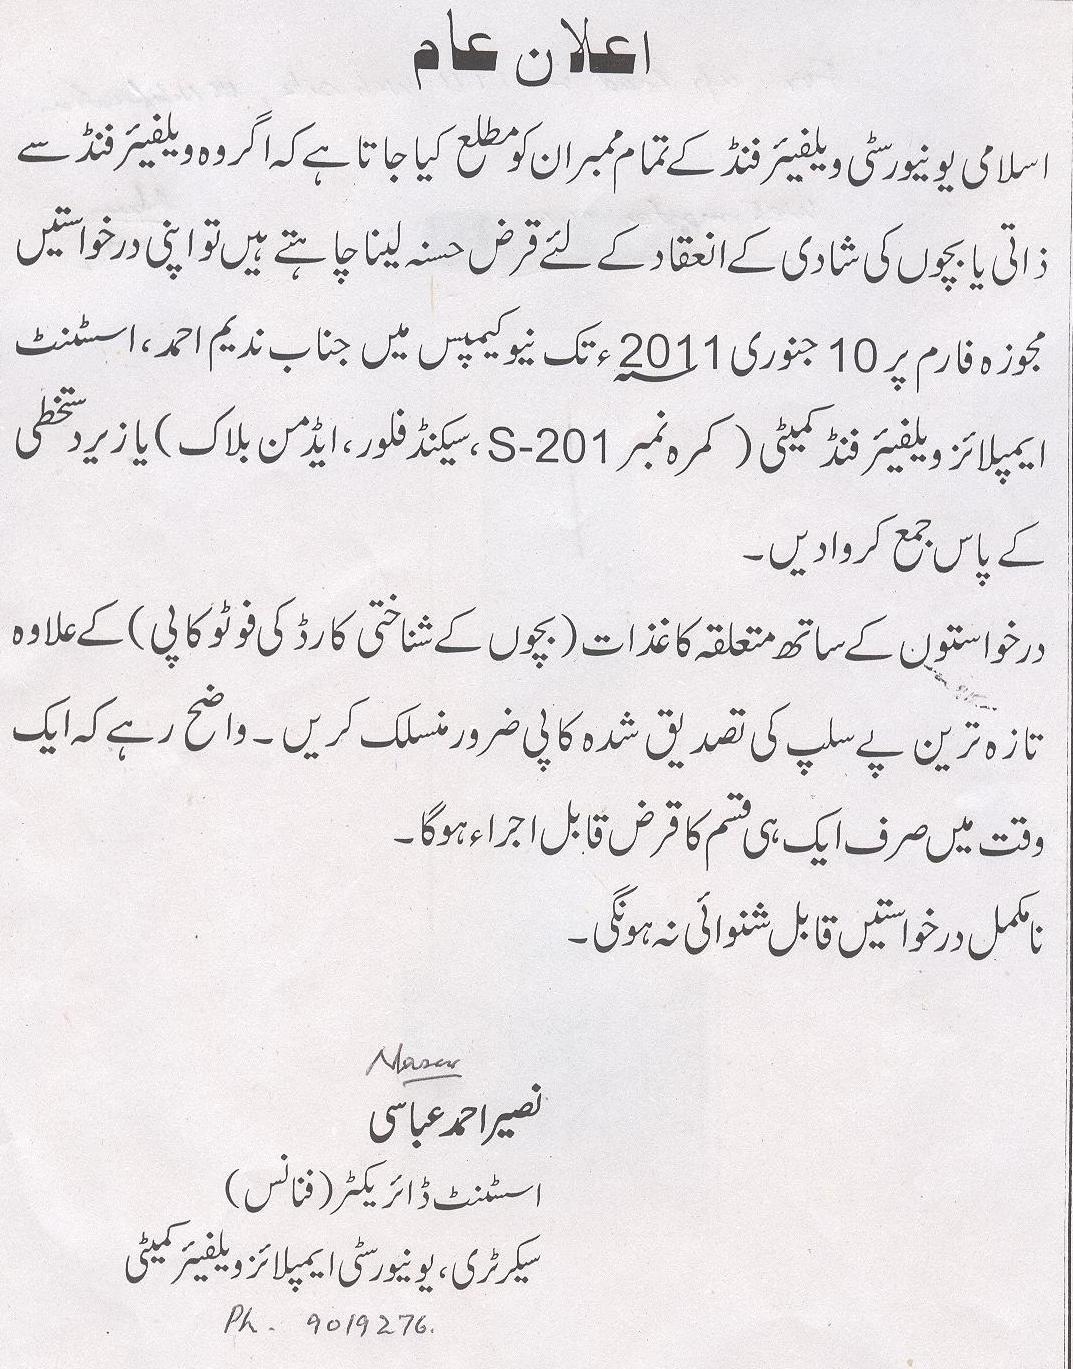 اعلان عام
اسلامی یونیورسٹی ویلفیئر فنڈ کے تمام ممبران کو مطلع کیا جاتا ہے کہ اگر وہ ویلفیئر فنڈ سے
ذاتی یا بچوں کی شادی کے انعقاد کے لئے قرض حسنہ لینا چاہتے ہیں تو اپنی درخواستیں
مجوزہ فارم پر 10 جنوری 2011ء تک نیو کیمپس میں جناب ندیم احمد، اسسٹنٹ
ایمپلائز ویلفیئر فنڈ کمیٹی ( کمرہ نمبر S-201، سیکنڈ فلور، ایڈمن بلاک ) یا زیر دستخطی
کے پاس جمع کروا دیں۔
درخواستوں کے ساتھ متعلقہ کاغذات (بچوں کے شناختی کارڈ کی فوٹو کاپی) کے علاوہ
تازہ ترین پے سلپ کی تصدیق شدہ کاپی ضرور منسلک کریں۔ واضح رہے کہ ایک
وقت میں صرف ایک ہی قسم کا قرض قابل اجراء ہوگا۔
نامکمل درخواستیں قابل شنوائی نہ ہونگی۔
نصیر احمد عباسی
اسسٹنٹ ڈائریکٹر (فنانس)
سیکرٹری، یونیورسٹی ایمپلائز ویلفیئر کمیٹی
Ph. 9019276.